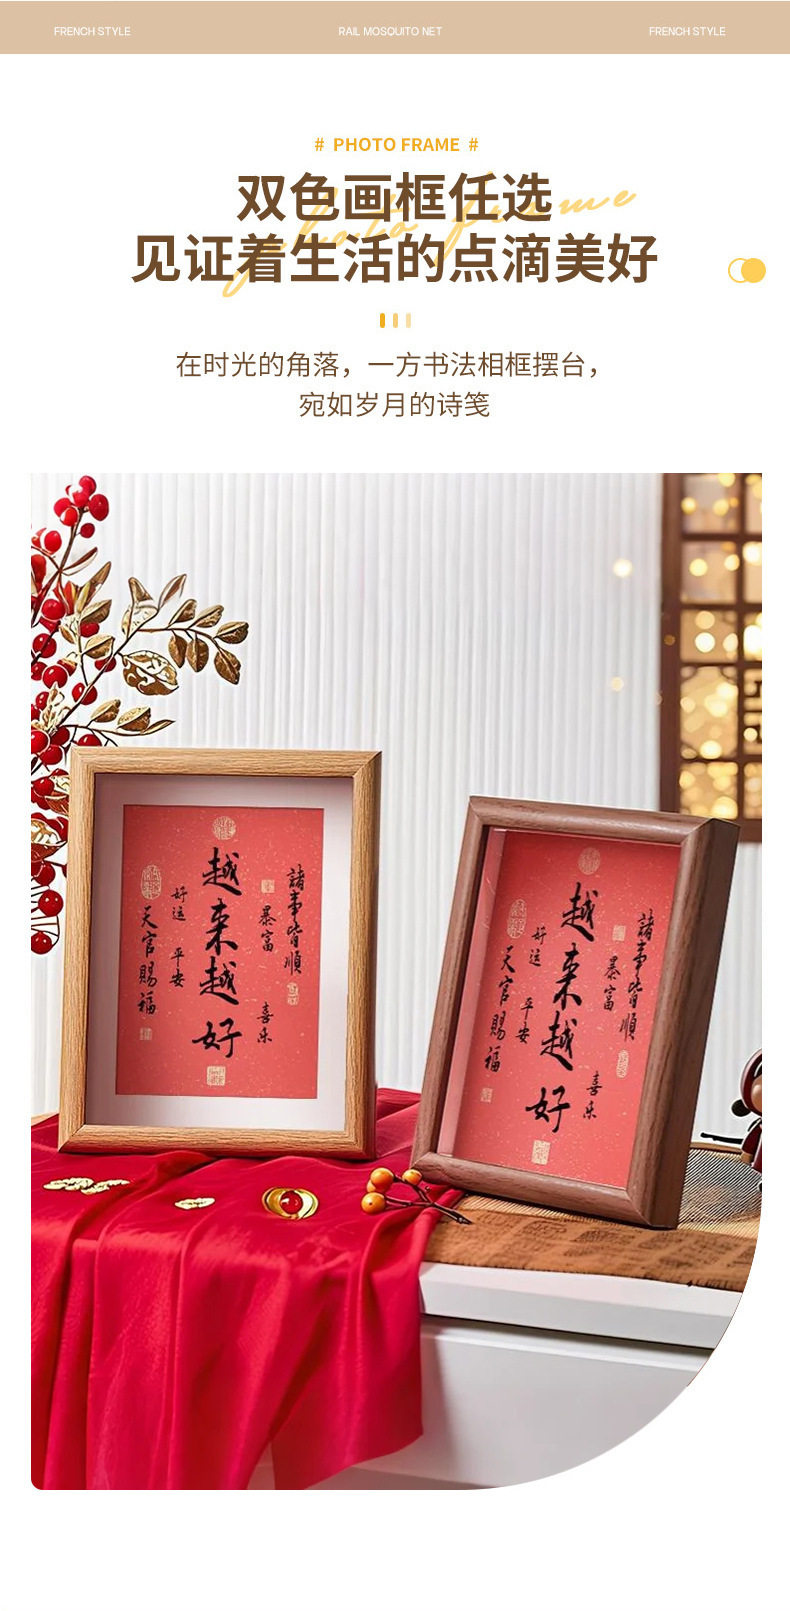 FRENCH STYLE
RAIL MOSQUITO NET
FRENCH STYLE
# PHOTO FRAME #
photo frame
双色画框任选
见证着生活的点滴美好
在时光的角落，一方书法相框摆台，
宛如岁月的诗笺
諸事皆順
暴富
喜乐
越来越好
好运
平安
天官賜福
諸事皆順
暴富
喜乐
越来越好
好运
平安
天官賜福